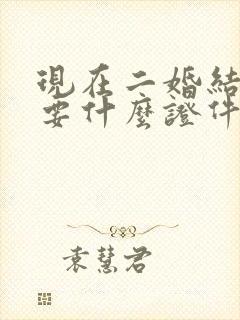 現在二婚結
要什麼證件
袁慧君